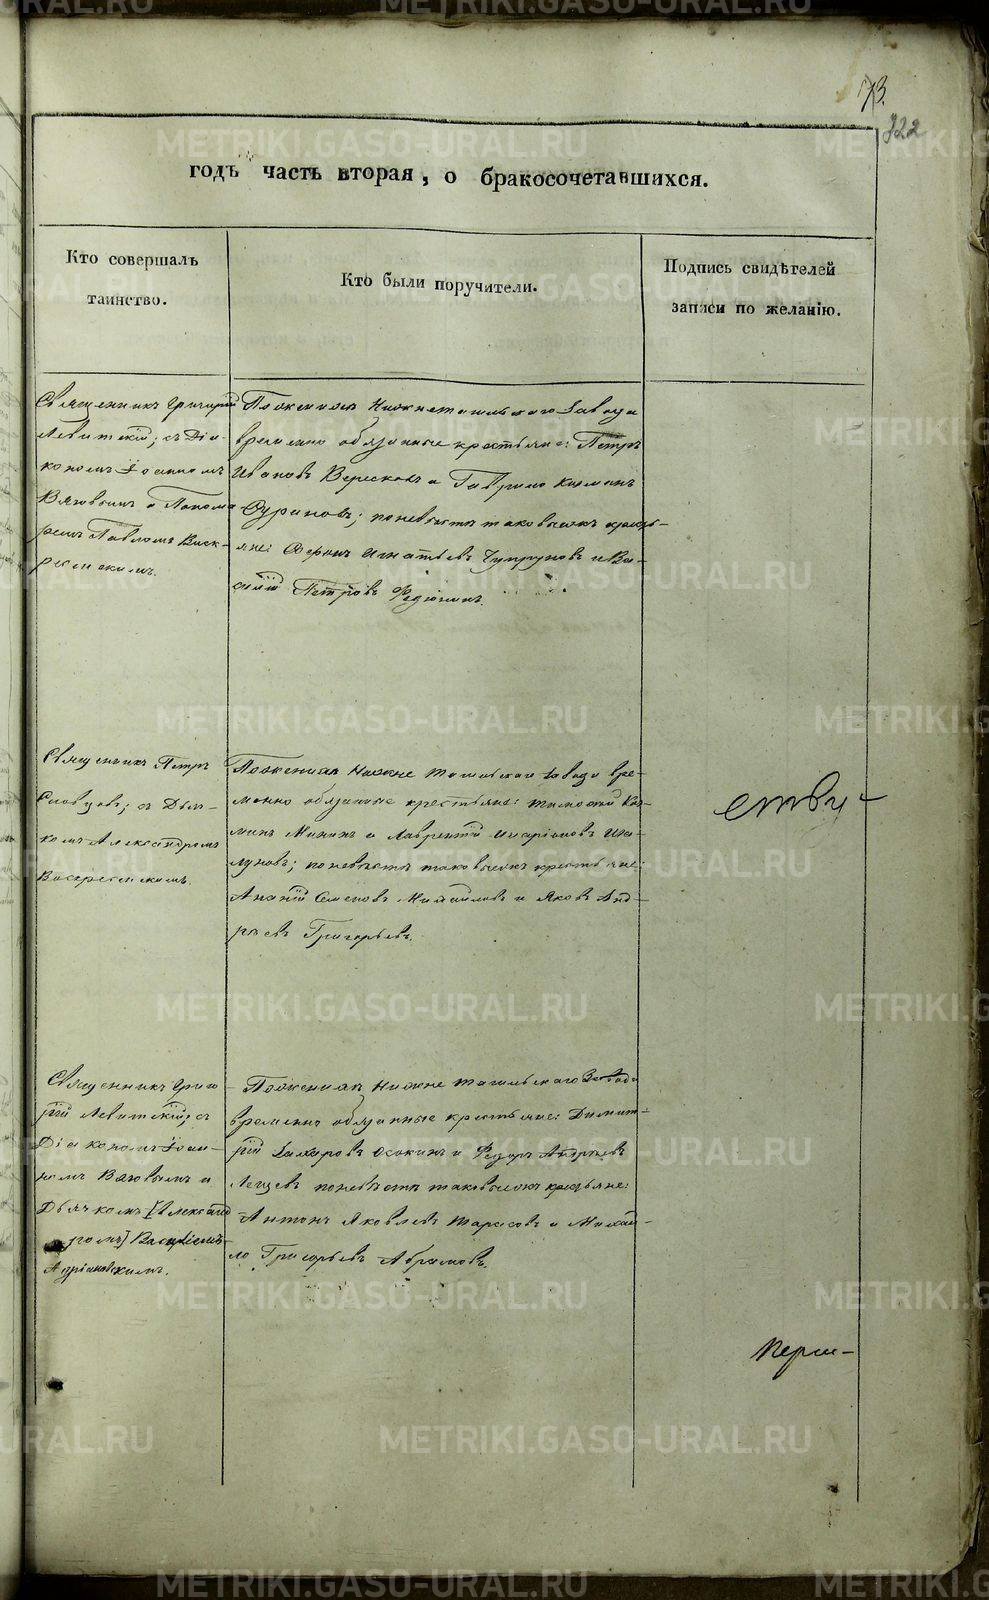 73.
322
годъ часть вторая, о бракосочетавшихся.
Кто совершалъ
таинство.
Кто были поручители.
Подпись свидѣтелей
записи по желанію.
Священникъ Григорій
Левитскій; съ Діа-
кономъ Іоанномъ
Вяговымъ и Понома
ремъ Павломъ Воск-
ресенскимъ.
По женихѣ Нижнетагильскаго завода
временно обязанные крестьяне: Петръ
Ивановъ Вересковъ и Гаврило Козминъ
по невѣстѣ таковыеже крестья-
не: Игнатьевъ Чупруновъ и Ва-
силій Петровъ Федюнинъ.
Священникъ Петръ
Словцовъ; съ Дьяч-
комъ Александромъ
Воскресенскимъ.
По женихѣ Нижне Тагильскаго завода вре-
менно обязанные крестьяне: Тимофей Коз-
минъ Мининъ и Лаврентій Иларіоновъ Ша-
луновъ; по невѣстѣ таковыеже крестьяне:
Ананій Семеновъ Михайловъ и Яковъ Анд-
реевъ Григорьевъ.
ству-
Священникъ Григо
рій Левитскій; съ
Діакономъ Іоан-
номъ Вяговымъ и
Дьячкомъ [Александ
ромъ] Василіемъ
Адріановскимъ.
По женихѣ Нижне Тагильскаго Завода
временно обязанные крестьяне: Димит-
рій Захаровъ Осокинъ и Федоръ Андреевъ
Лещевъ по невѣстѣ таковыеже крестьяне:
Антонъ Яковлевъ Тарасовъ и Михай-
ло Григорьевъ Абрамовъ.
METRIKI.GASO-URAL.RU